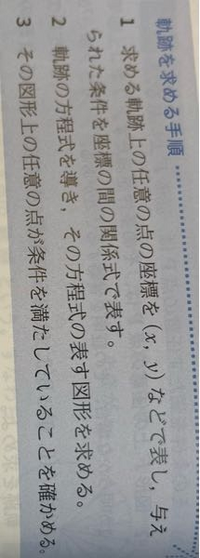 軌跡を求める手順
1 求める軌跡上の任意の点の座標を(x, y)などで表し,与え
られた条件を座標の間の関係式で表す。
2 軌跡の方程式を導き,その方程式の表す図形を求める。
3 その図形上の任意の点が条件を満たしていることを確かめる。